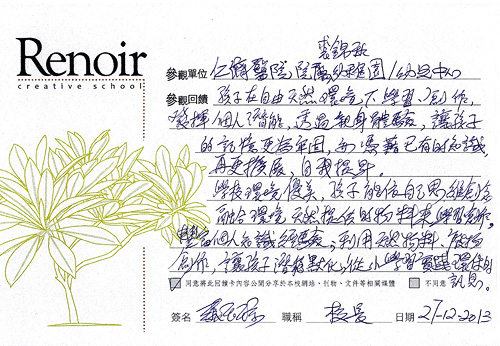 Renoir
creative school
參觀單位 仁濟醫院 幼稚園/幼兒中心
參觀回饋 孩子在自由天然環境下學習、創作,
發揮個人潛能,透過親身體驗,讓孩子
的記憶更為牢固,而憑藉已有的知識,
再更擴展,自我提昇。
學校環境優美,孩子能位自己思維創意
融合環境 天然提供的物料來學習創作。
豐富個人知識經驗,利用天然物料、廢物
創作,讓孩子潛移默化,從小學習實踐環保的
訊息。
同意將此回饋卡內容公開分享於本校網站、刊物、文件等相關媒體 不同意
簽名 職稱 校長 日期 27-12-2013